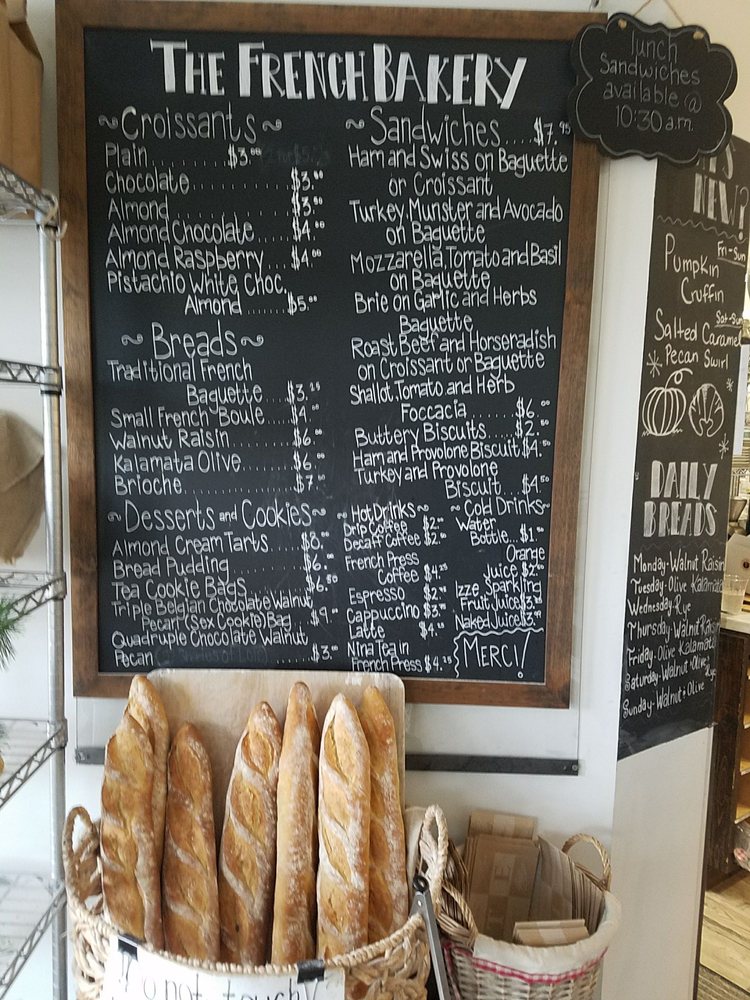 THE FRENCH BAKERY
~Croissants~
Plain........$3.00
Chocolate............$3.
Almond............$3.50
Almond Chocolate....$4.00
Almond Raspberry....$4.00
Pistachio White Choc.
Almond.....$5.00
~Breads~
Traditional French
Baguette....$3.25
Small French Boule....$4.00
Walnut Raisin.........$6.
Kalamata Olive.......$6.
Brioche..............$7.
~Desserts and Cookies~
Almond Cream Tarts....$8.
Bread Pudding........$6.
Tea Cookie Bags......$6.50
Triple Belgian Chocolate Walnut
Pecan (Sex Cookie) Bag....$9.
Quadruple Chocolate Walnut
Pecan ....$3.
~Sandwiches....$7.95
Ham and Swiss on Baguette
or Croissant
Turkey, Munster and Avocado
on Baguette
Mozzarella, Tomato and Basil
on Baguette
Brie on Garlic and Herbs
Baguette
Roast Beef and Horseradish
on Croissant or Baguette
Shallot, Tomato and Herb
Foccacia........$6.
Buttery Biscuits.....$2.50
Ham and Provolone Biscuit.$4.50
Turkey and Provolone
Biscuit....$4.50
~Hot Drinks~
Drip Coffee $2.
Decaff Coffee $2.
French Press
Coffee $4.25
Espresso $2.
Cappuccino $3.
Latte $4.
Nina Tea in
French Press $4.25
~Cold Drinks~
Water
Bottle...$1.
Orange
Juice $2.
Izze Sparkling
Fruit Juice $3.
Naked Juice $3.
MERCI!
lunch
Sandwiches
available @
10:30 a.m.
NEW?
Fri-Sun
Pumpkin
Cruffin
Sat-Sun
Salted Caramel
Pecan Swirl
DAILY
BREADS
Monday-Walnut Raisin
Tuesday-Olive Kalamata
Wednesday-Rye
Thursday-Walnut Raisin
Friday-Olive Kalamata
Saturday-Walnut+Olive
Rye
Sunday-Walnut+Olive
Do not touch!